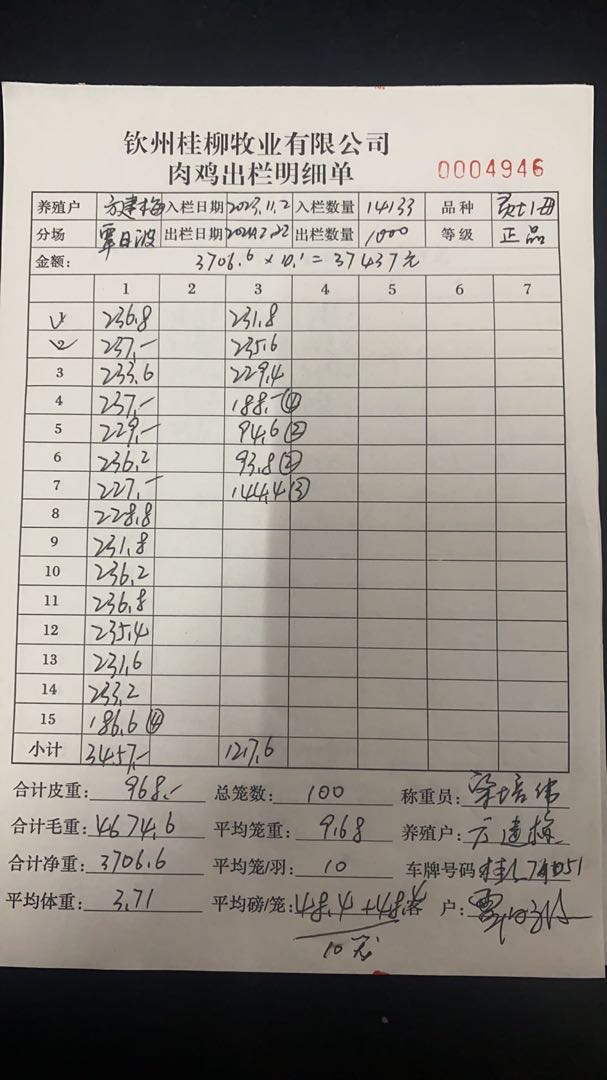 钦州桂柳牧业有限公司
肉鸡出栏明细单 0004946
养殖户 方建梅 入栏日期 2023.11.2 入栏数量 14133 品种
分场 覃日波 出栏日期 出栏数量 1000 等级 正品
金额: 3706.6 × 10.1 = 37437元
1 2 3 4 5 6 7
1 236.8 231.8
2 237.- 235.6
3 233.6 229.4
4 237.- 188.- ④
5 229.- 94.6 ②
6 236.2 93.8 ②
7 227.- 144.4 ③
8 228.8
9 231.8
10 236.2
11 236.8
12 235.4
13 231.6
14 233.2
15 186.6 ④
小计 3457.- 1217.6
合计皮重: 968.- 总笼数: 100 称重员: 梁培伟
合计毛重: 4674.6 平均笼重: 9.68 养殖户: 方建梅
合计净重: 3706.6 平均笼/羽: 10 车牌号码
平均体重: 3.71 平均磅/笼: 48.4 + 48.4 客 户:
10笼